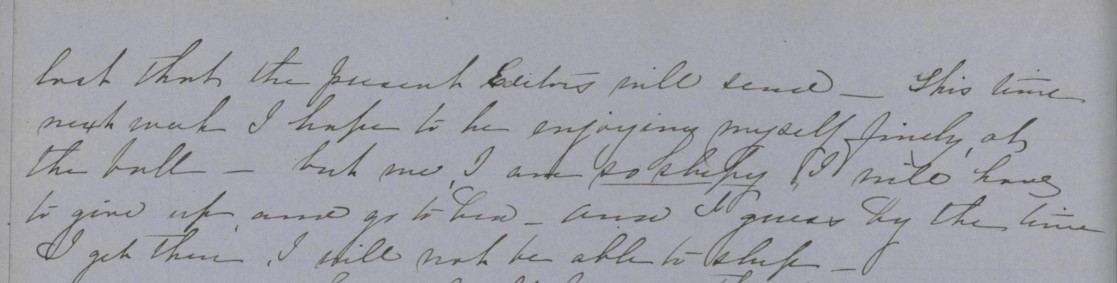 last that the present Editors will send — This time
next week I hope to be enjoying myself finely, at
the ball — but me, I am so sleepy, I will have
to give up and go to bed — and I guess by the time
I get there, I will not be able to sleep —